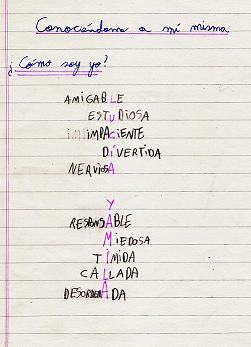 Conociéndome a mí misma
¿Cómo soy yo?
AMIGABLE
ESTUDIOSA
IMPACIENTE
DIVERTIDA
NERVIOSA
Y
RESPONSABLE
MIEDOSA
TIMIDA
CALLADA
DESORDENADA